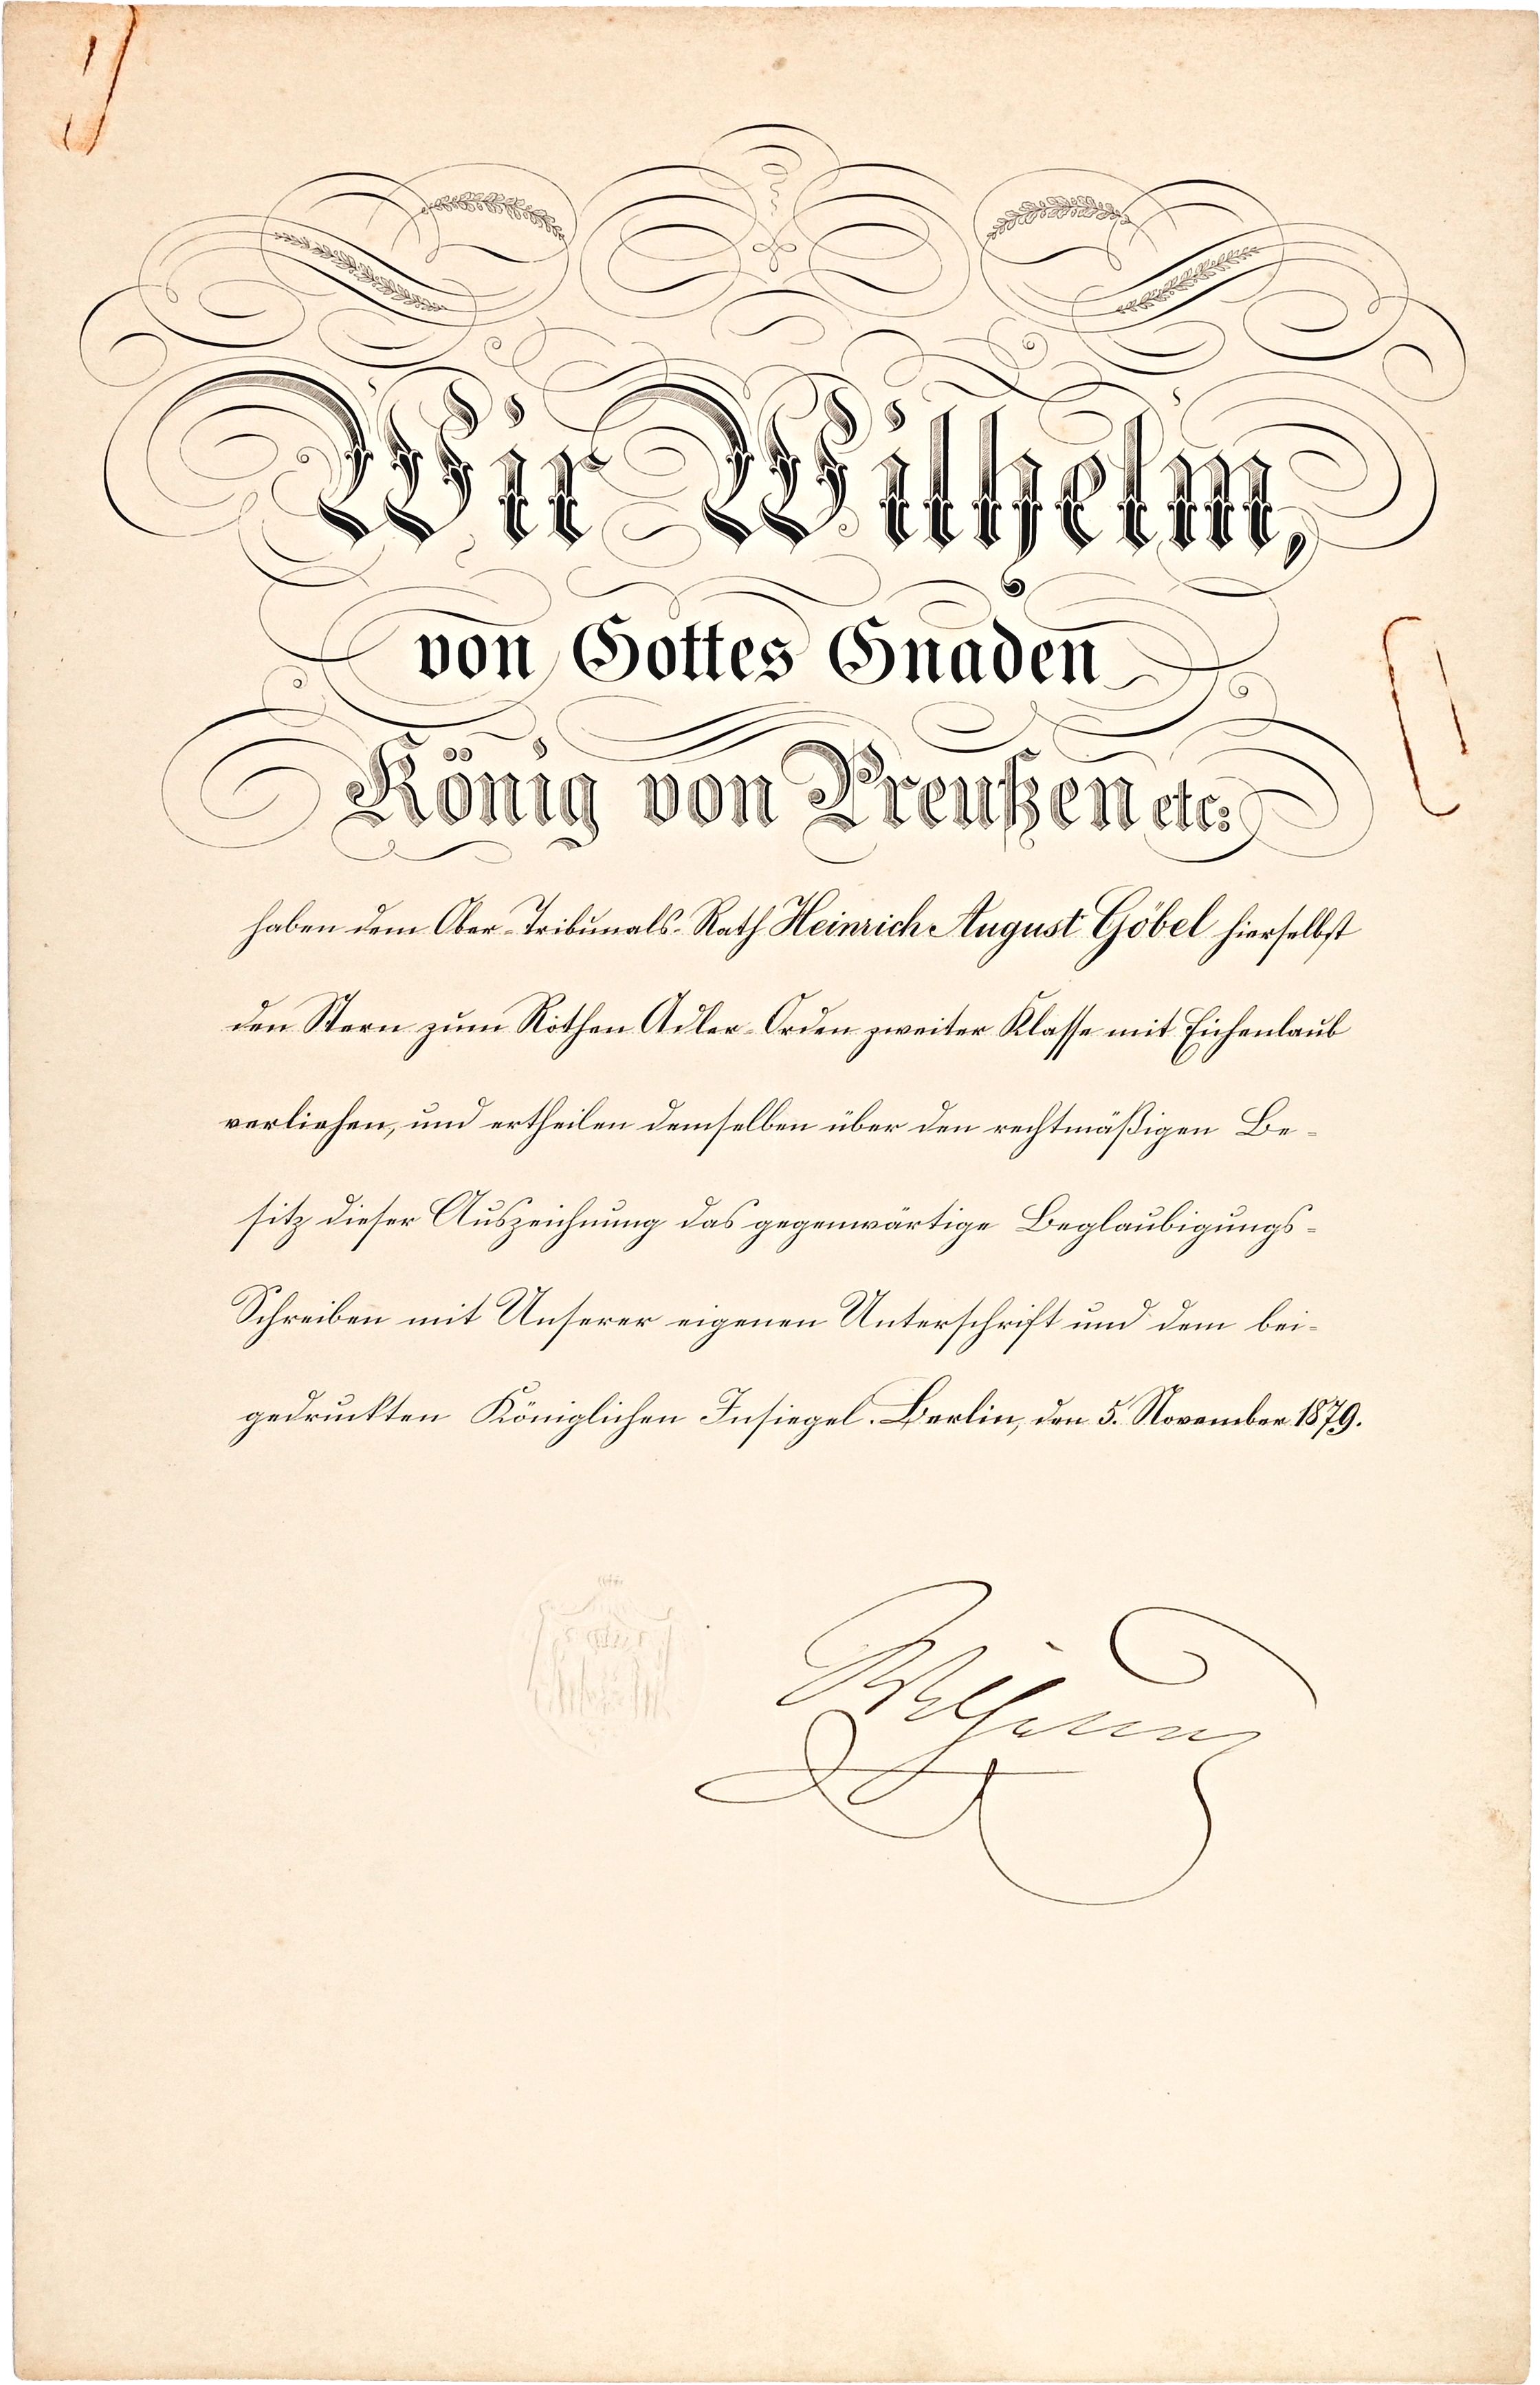 Wir Wilhelm,
von Gottes Gnaden
König von Preußen etc:
haben dem Ober-Tribunals-Rath Heinrich August Göbel hierselbst
den Stern zum Rothen Adler-Orden zweiter Klasse mit Eichenlaub
verliehen, und ertheilen demselben über den rechtmäßigen Be-
sitz dieser Auszeichnung das gegenwärtige Beglaubigungs-
Schreiben mit Unserer eigenen Unterschrift und dem bei-
gedruckten Königlichen Insiegel. Berlin, den 5. November 1879.
Wilhelm